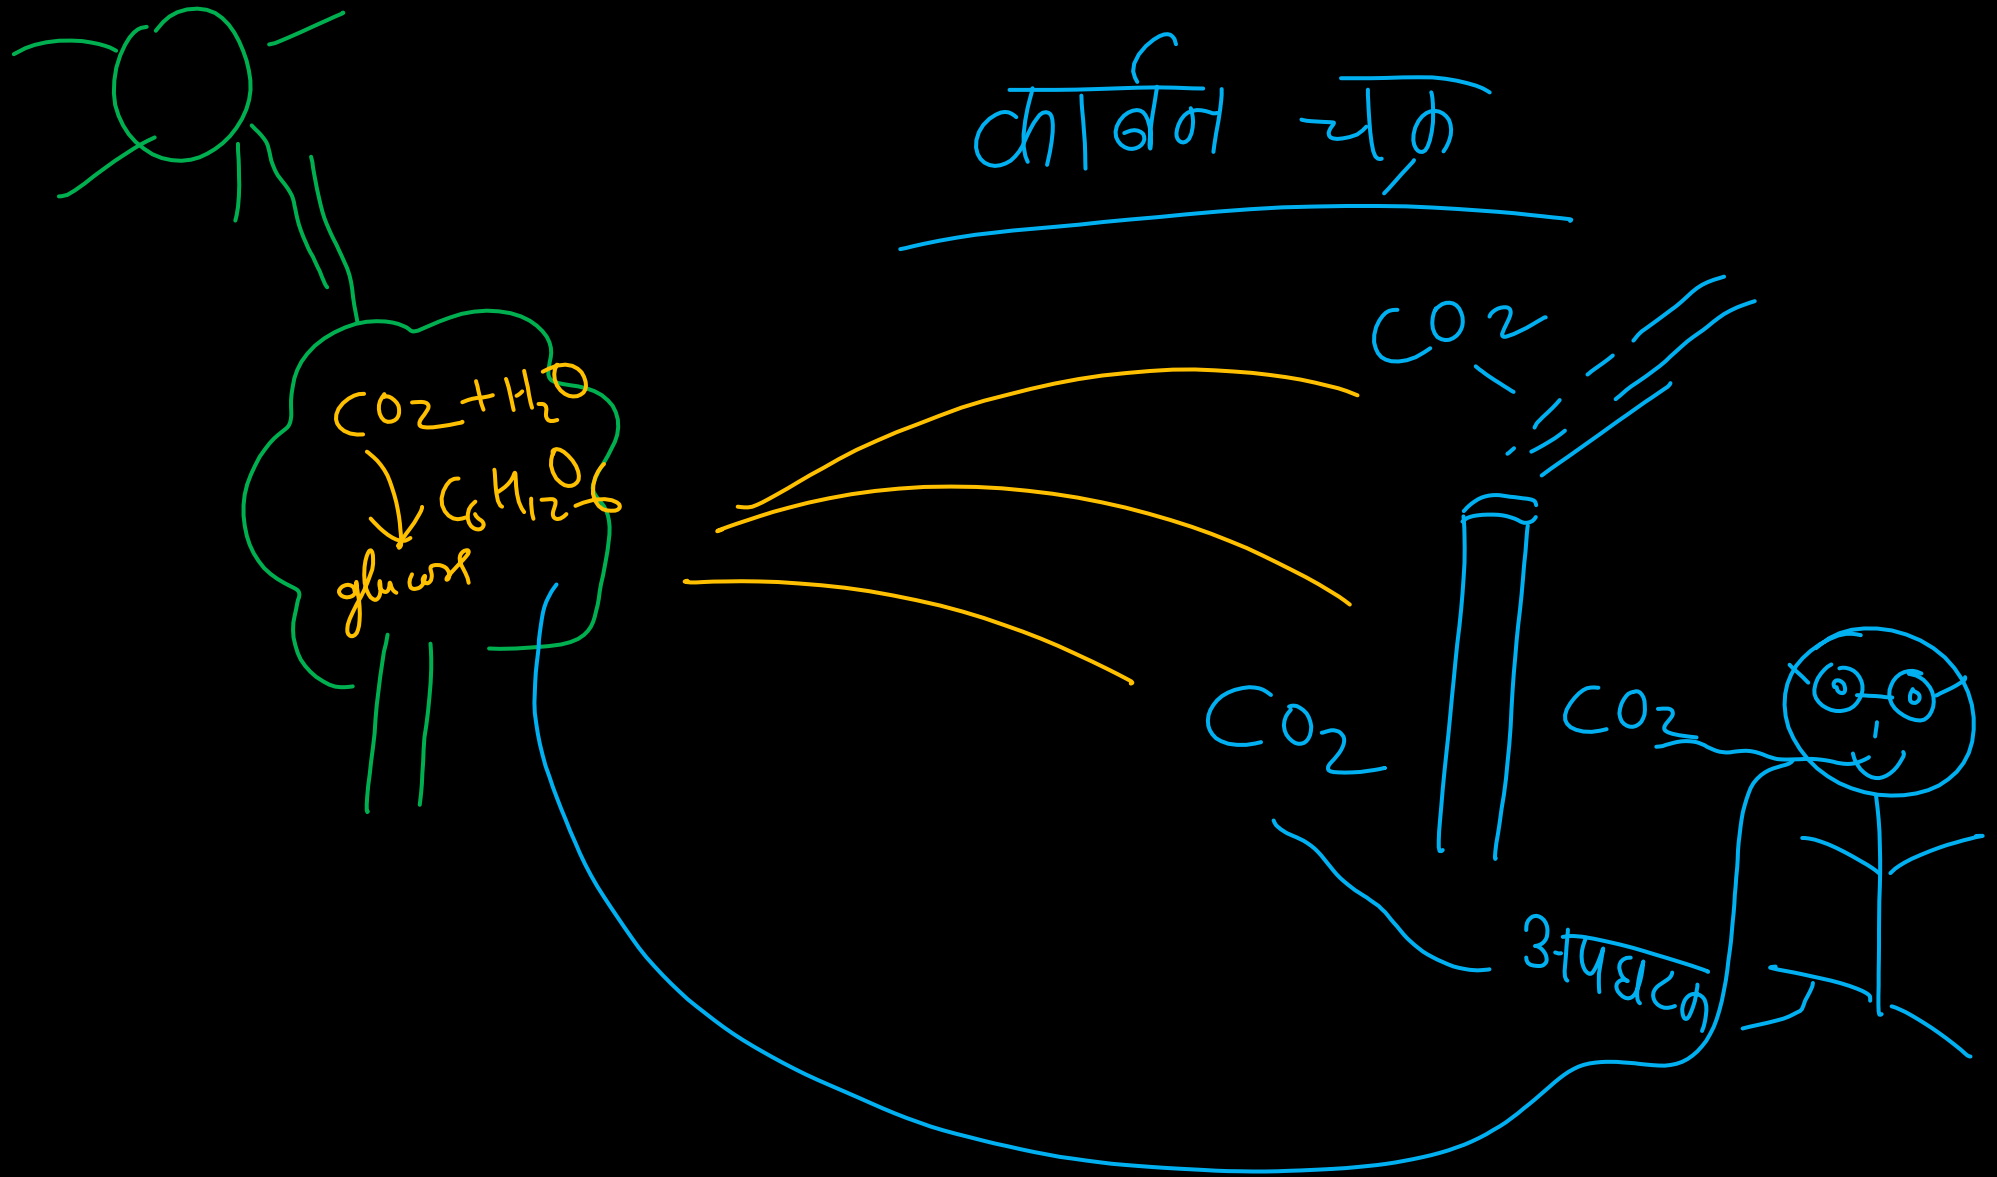 कार्बन चक्र
CO2
CO2 + H2O
C6H12O6
glucose
CO2
CO2
अपघटन